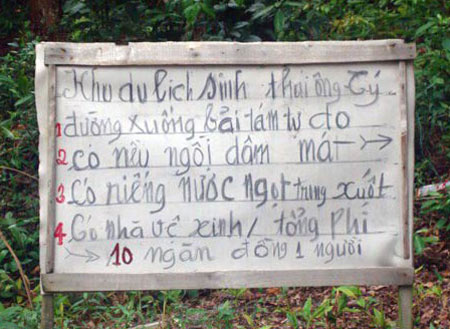 Khu du lịch sinh thái ông Tý
1 đường xuống bải tám tự do
2 có nều ngồi dâm mát →
3 Có riếng nước ngọt trung xuốt
4 Có nhà vê xinh / tổng phí
→ 10 ngàn đồng 1 người